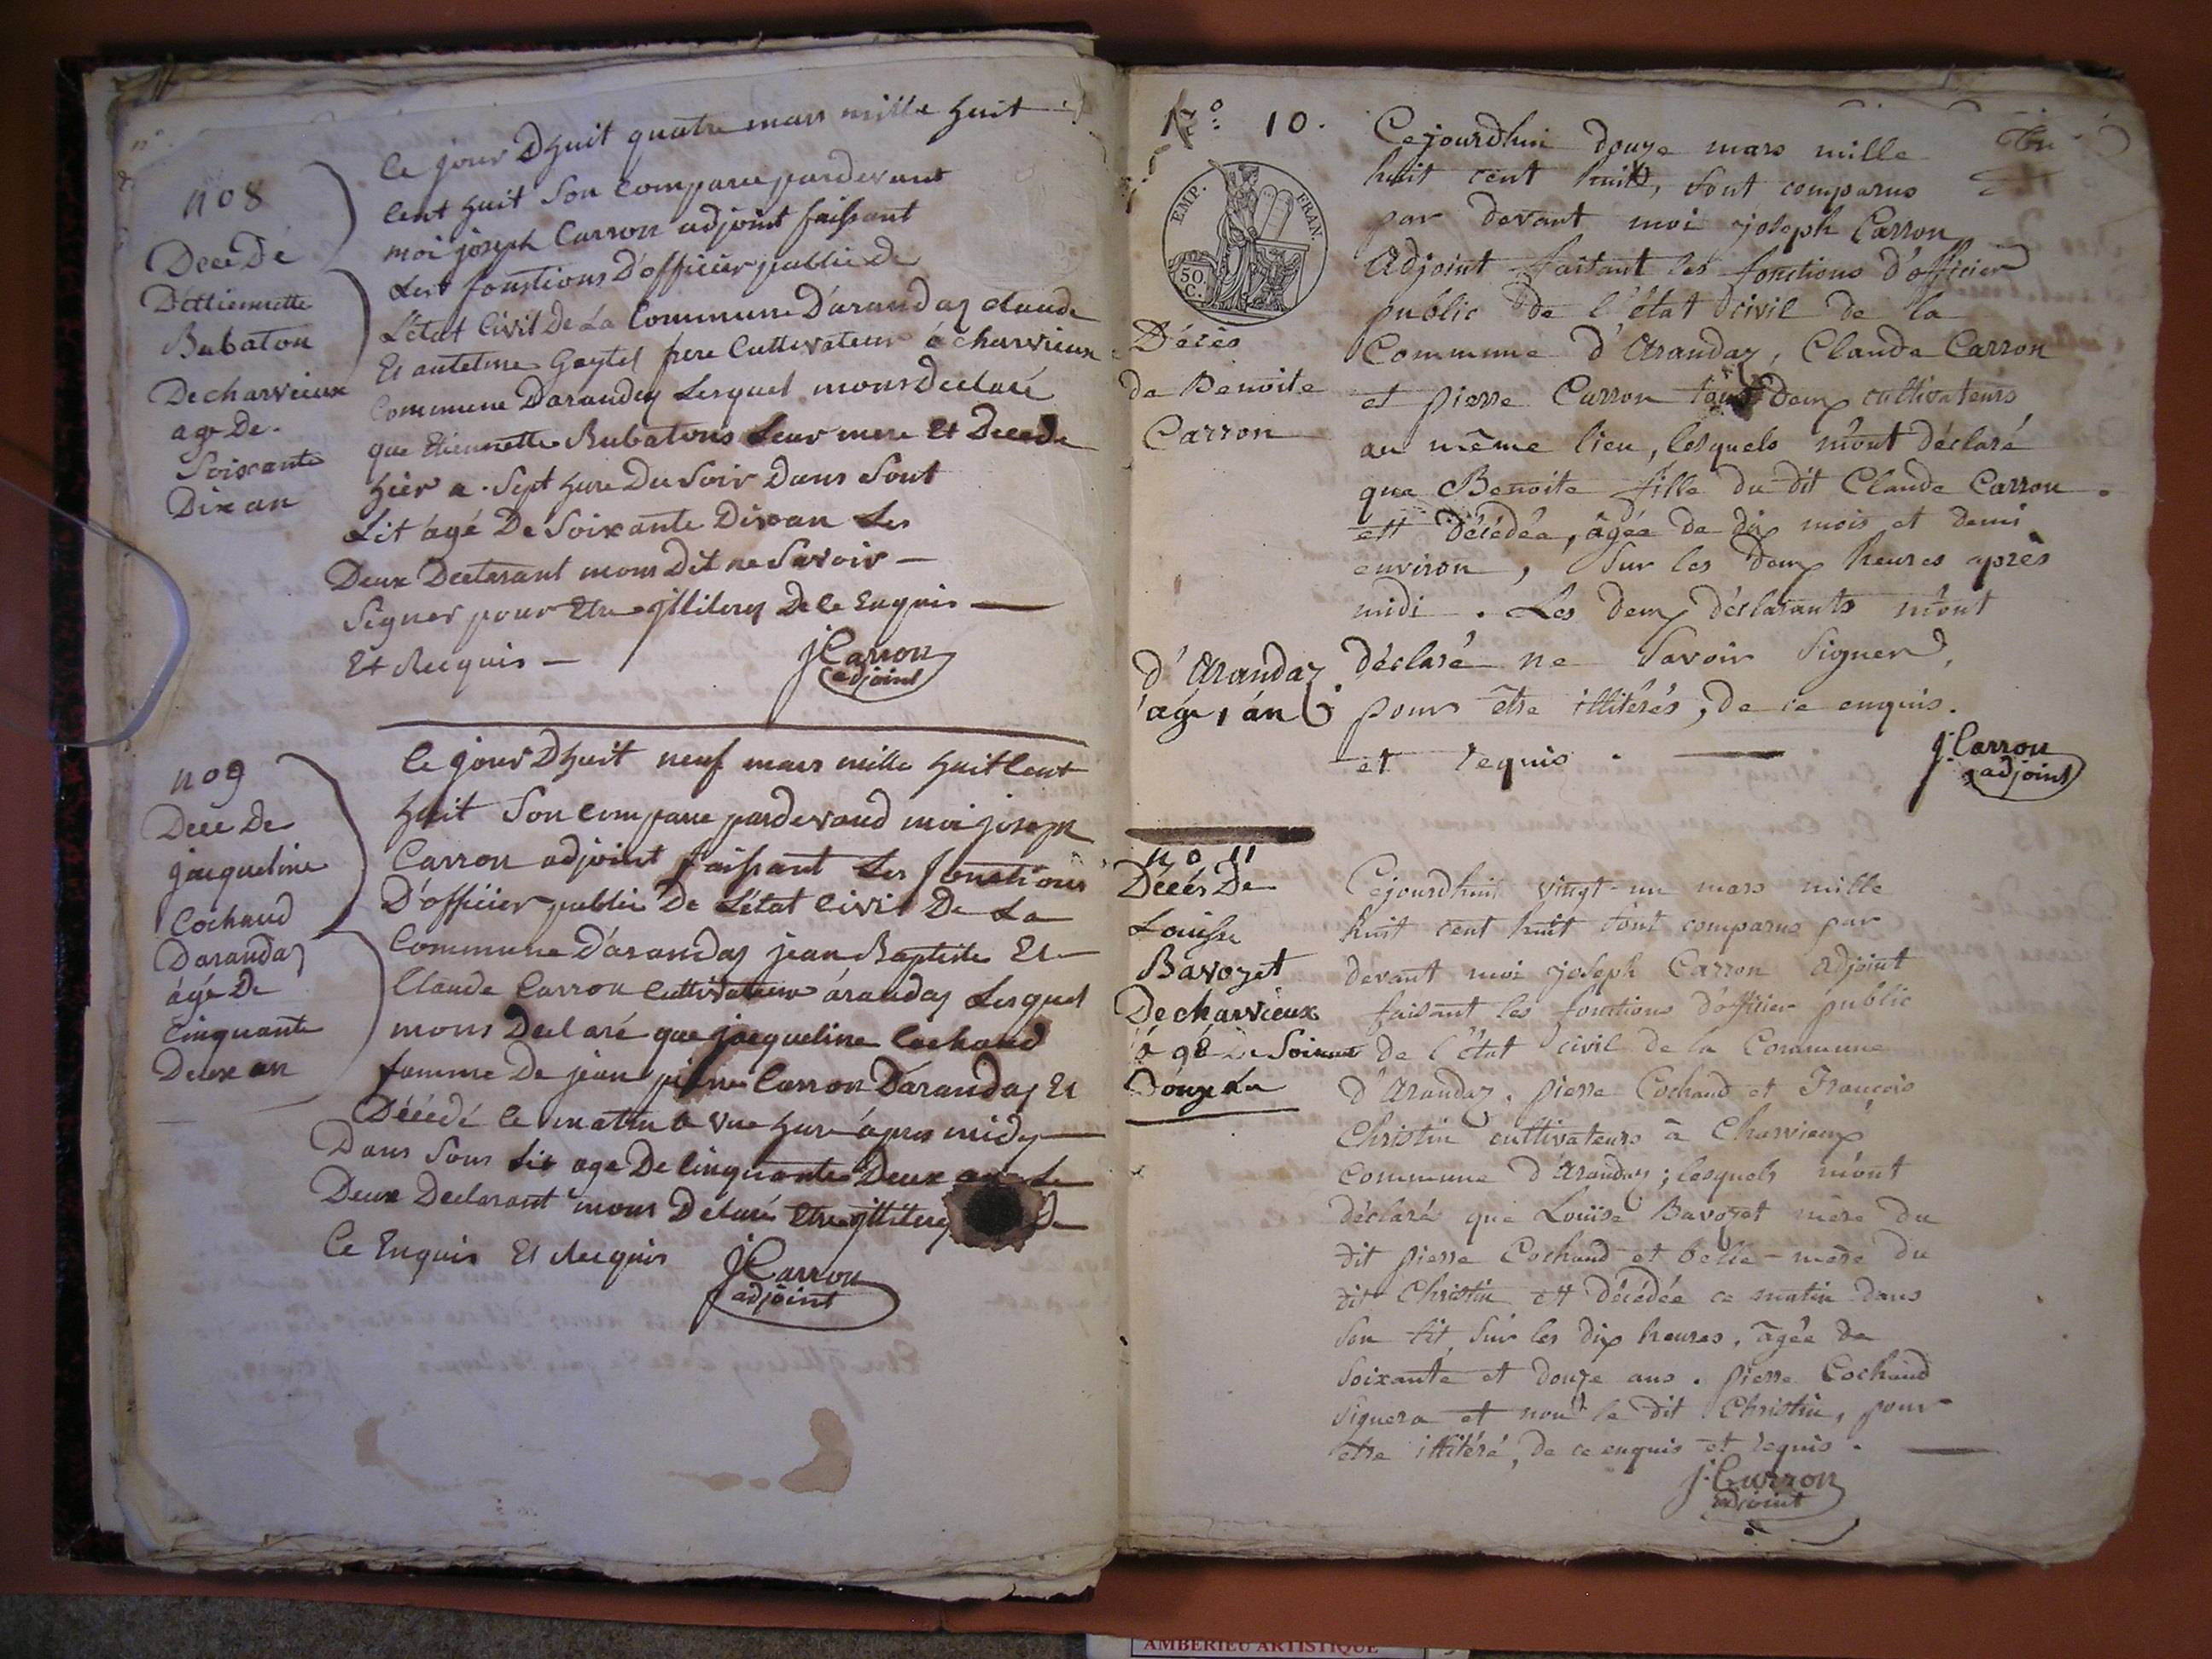 n o 8
Decé De
D'ettiennette
Rubaton
De charvieux
age De
Soixante
Dix an
Ce jour Dhuit quatre mars mille huit
Cent huit Son Comparu pardevant
moi joseph Carron adjoint faissant
Les fonstions D'officier public De
L'état Civil De La Commune D'arandas Claude
Et antelme Gaytel frere Cultivateur á charvieux
Commune Darandas Lesquel mons Declaré
que Etiennette Rubatons Leur mere Et Decedé
hier a Sept hure Du Soir Dans Sont
Lit agé De Soixante Dix an Les
Deux Declerant mons Dit ne Savoir
Signer pour Etre jlliterey De Ce Enquis
Et Requis
J Carron
adjoint
n o 9
Decé De
jacqueline
Cochaud
Darandas
ágé De
Cinquante
Deux an
Ce jour Dhuit neuf mars mille huit Cent
huit Son Comparu pardevand moi joseph
Carron adjoint faissant Les fonstions
D'officier public De L'état Civil De La
Commune D'arandas jean Baptiste Et
Claude Carron Cultivateur árandas Lesquel
mons Declaré que jacqueline Cochaud
famme De jean pierre Carron Darandas Et
Décédé Ce matin a vne hure ápres midy
Dans Sons Lit age De Cinquante Deux an Le
Deux Declarant mons Delaré Etre jlliterey De
Ce Enquis Et Requis
J Carron
adjoint
N.o 10.
EMP. FRAN.
50 C.
Décès
de Benoite
Carron
d'Arandaz
âgé 1 án
Cejourdhui douze mars mille
huit cent huit, sont comparus
par devant moi joseph Carron
Adjoint faisant les fonctions d'officier
public de l'état civil de la
Commune d'Arandaz, Claude Carron
et pierre Carron tous deux cultivateurs
au même lieu, lesquels m'ont déclaré
que Benoite fille du dit Claude Carron
est décédée, âgée de dix mois et demi
environ, sur les deux heures après
midi. Les deux déclarants m'ont
déclaré ne savoir signer,
pour être illitérés, de ce enquis.
et requis.
J. Carron
adjoint
n o 11
Décés De
Louisse
Bavozet
De charvieux
á gé De Soixante
Douze An
Cejourdhui vingt-un mars mille
huit cent huit sont comparus par
devant moi joseph Carron adjoint
faisant les fonctions d'officier public
de l'état civil de la Commune
d'Arandaz, pierre Cochaud et François
Christin cultivateurs à Charvieux
commune d'Arandaz; lesquels m'ont
déclaré que Louise Bavozet mère du
dit pierre Cochaud et belle-mère du
dit Christin est décédée ce matin dans
son lit, sur les dix heures, âgée de
soixante et douze ans. pierre Cochaud
signera et non le dit Christin, pour
etre illitéré, de ce enquis et requis.
J. Carron
adjoint
AMBERIEU ARTISTIQUE